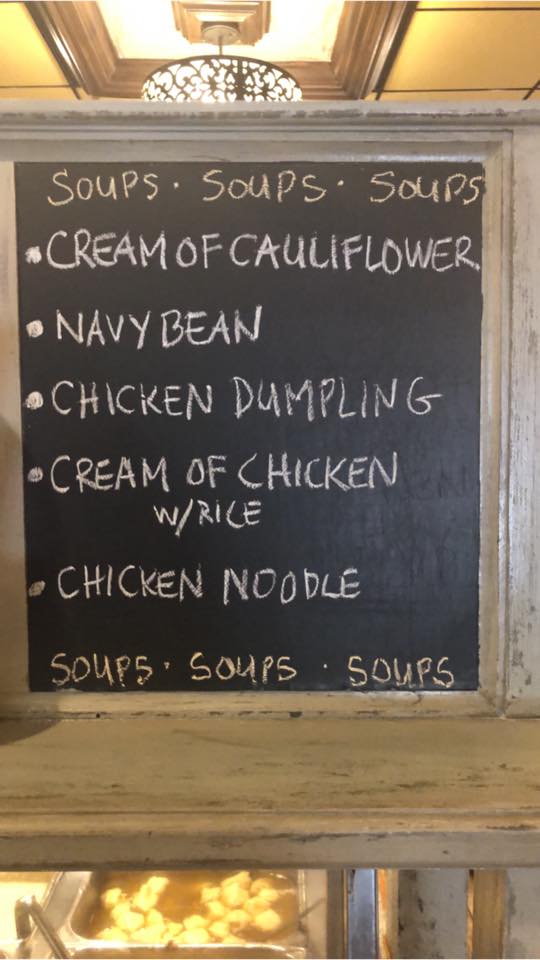 SOUPS · SOUPS · SOUPS
• CREAM OF CAULIFLOWER
• NAVY BEAN
• CHICKEN DUMPLING
• CREAM OF CHICKEN
W/RICE
• CHICKEN NOODLE
SOUPS · SOUPS · SOUPS